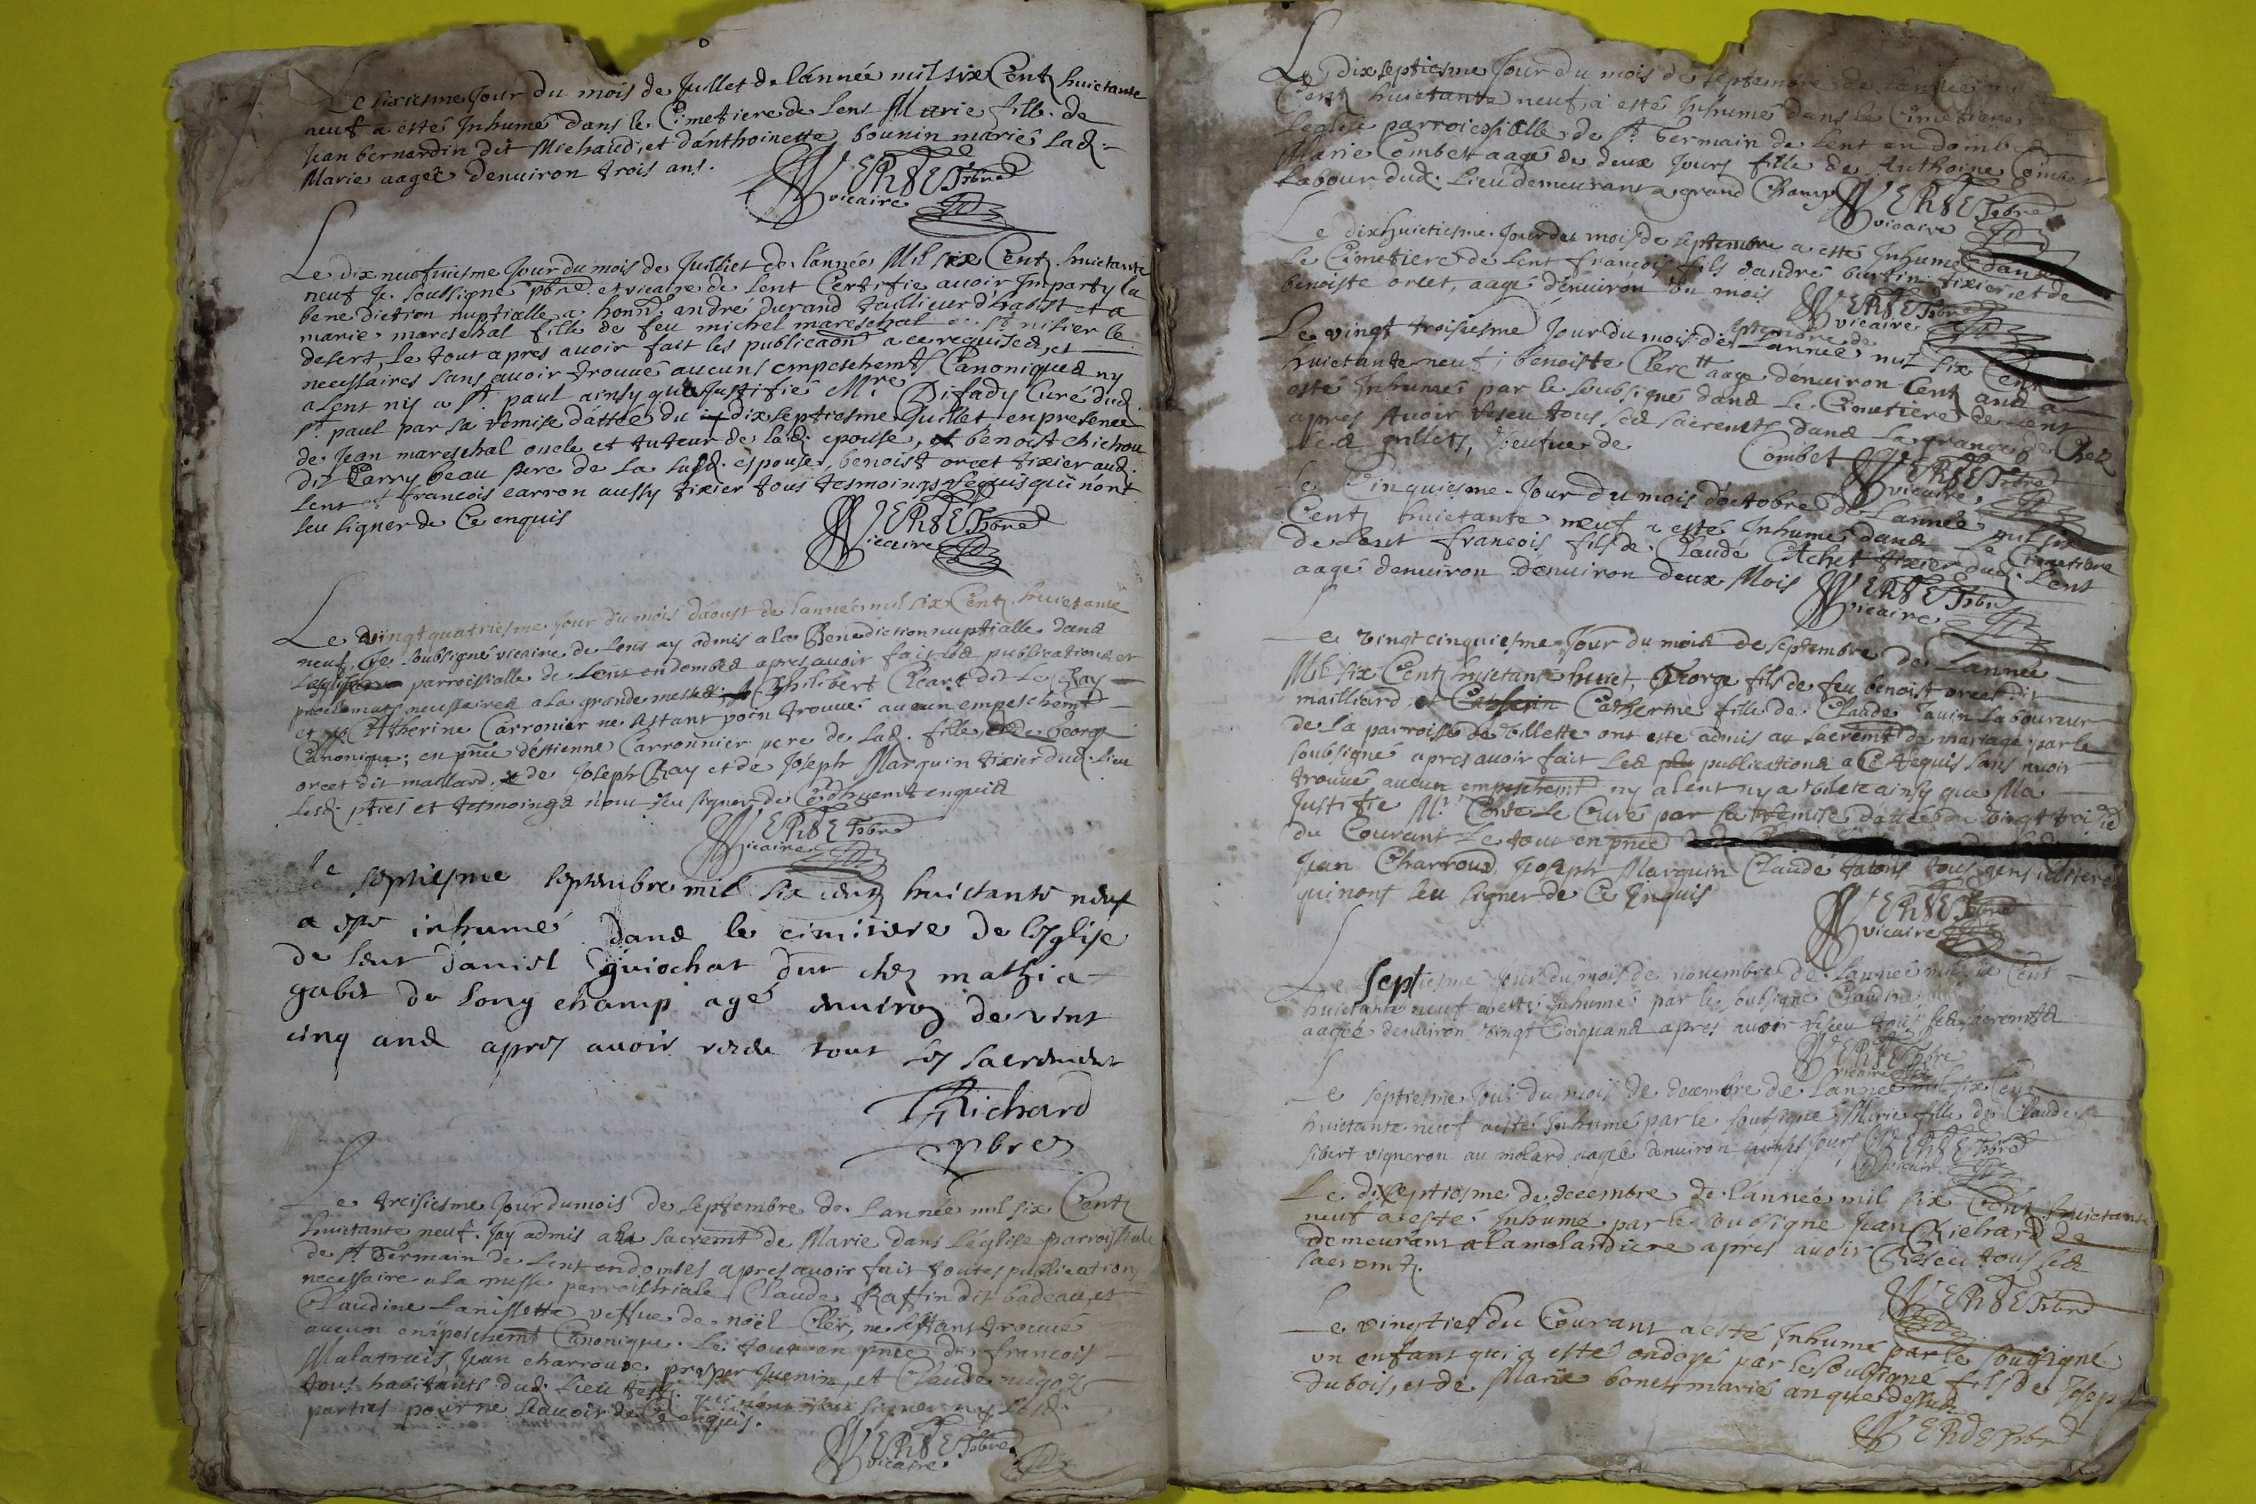 Le sixiesme Jour du mois de Juillet de l'année mil six Centz huictante
neuf a esté Inhumé dans le Cimetiere de Lent Marie fille de
Jean bernardin dit Michaud, et d'anthoinette bounin mariés lad.
Marie aagée d'enuiron trois ans.
VERDET pbre
vicaire
Le dix neufuiesme Jour du mois de Juilliet de l'année Mil six Centz huictante
neuf Je soubsigné pbre et vicaire de Lent Certifie auoir Imparty la
benediction nuptialle a honn. andré durand taillieur d'habist et a
marie mareschal fille de feu michel mareschal de st nisier le
desert, le tout apres auoir fait les publicaon a ce requises, et
necessaires sans auoir trouué aucuns empeschemt Canoniques ny
a Lent ny a st. paul ainsy qu'a Justifié Mre Difady Curé dud.
st. paul par sa remise dattée du dix septiesme Juillet en presence
de Jean mareschal oncle et tuteur de lad. epouse, et benoist chichou
dit Carry beau pere de la susd. espouse, benoist orcet tixier aud.
Lent et francois carron aussy tixier tous tesmoings requis qui n'ont
seu signer de Ce enquis
VERDET pbre
Vicaire
Le vingt quatriesme jour du mois d'aoust de l'année mil six Centz huictante
neuf, Je soubsigné vicaire de Lent ay admis a la Benediction nuptialle dans
L'eglise parroissialle de Lent en dombes apres auoir fait les publications et
proclamats necessaires a la grande messe Philibert Cleart dit Le Ray
et Catherine Carronier ne s'estant poin trouué aucun empeschemt
Canonique; en pnce d'estienne Carronnier pere de lad. fille, de George
orcet dit maillard, de Joseph Ray et de Joseph Marquin tixier dud. lieu
lesd. pties et tesmoings n'ont seu signer de Ce dhuemt enquis
VERDET pbre
Vicaire
Le septiesme septembre mil six centz huictante neuf
a este inhumé dans le cimitiere de l'Eglise
de Lent Daniel Guiochat dut chez mathia
gabet de long champ agé enuiron de vint
cinq ans apres auoir receu tout les sacrement
Richard
pbre
Le treisiesme Jour du mois de septembre de l'année mil six Centz
huictante neuf. Jay admis au sacremt de Marie dans L'eglise parroissiale
de St Germain de Lent en dombes apres auoir fait toutes publications
necessaire a la messe parroisstriale Claude Raffin dit badeau, et
Claudine Lanissette veffue de noël Cler, ne s'estant trouué
aucun enpeschemt Canonique. Le tout en pnce de francois
Malatrais Jean charroud prosper Juenin, et Claude nugoz
tous habitants dud. Lieu tesm. qui n'ont seu signer ny lesd.
parties pour ne scauoir de Ce enquis.
VERDET pbre
vicaire
Le dix septiesme Jour du mois de septembre de l'année mil
Centz huictante neuf a esté Inhumé dans le Cimetiere de
L'eglise parroicssialle de St. Germain de Lent en dombes
Marie Combet aagé de deux Jours fille de Anthoine Combet
Labour dud. Lieu demeurant a grand Champ VERDET pbre
vicaire
Le dixhuictiesme Jour du mois de septembre a esté Inhumé dans
Le Cimetiere de Lent francois fils d'andré burtin tixier, et de
benoiste orcet, aagé d'enuiron un mois VERDET pbre
vicaire
Le vingt troisiesme Jour du mois de septembre de l'année mil six Cent
huictante neuf; benoiste Clerc aagé d'enuiron Cent ans a
esté Inhumée par le soubsigné dans le Cimetiere de Lent
apres Auoir reseu tous ses sacrements dans la grange de Chez
les grillets, veufue de Combet VERDET pbre
vicaire
Le Cinquiesme Jour du mois d'octobre de l'année mil six
Centz huictante neuf a esté Inhumé dans le Cimetiere
de Lent francois fils de Claude Cachet tixier dud. Lent
aagé denuiron denuiron deux Mois VERDET pbre
vicaire
Le vingt cinquiesme Jour du mois de septembre de L'année
Mil six Centz huictante huict, George fils de feu benoist orcet dit
mailliard et Catherine fille de Claude Jauin Laboureur
de la parroisse de Villette ont este admis au sacremt de mariage par le
soubsigné apres auoir fait Les publications a Ce requis sans auoir
trouué aucun empeschemt ny a lent ny a volete ainsy que Ma
Justifié Mr. Conte Le Curé par sa remise dattée du vingt trois
du Courant Le tout en pnce de
Jean Charroud, Joseph Marquin Claude talons tous gens illiterés
qui n'ont seu signer de Ce Enquis
VERDET pbre
vicaire
Le septiesme Jour du mois de nouembre de l'année mil six Cent
huictante neuf a esté Inhumée par le soubsigné Claudine
aagée d'enuiron vingt Cinquans apres auoir reseu tous ses sacremts
VERDET pbre
vicaire
Le septiesme Jour du mois de decembre de l'année mil six Cent
huictante neuf a esté Inhumé par le soubsigné Marie fille de Claude
sibert vigneron au molard aagée d'enuiron jours VERDET pbre
vicaire
Le dixseptiesme de decembre de l'année mil six Cent huictante
neuf a esté Inhumé par le soubsigné Jean Richard de
demeurant a la molardiere apres auoir Reseu tous ses
sacremtz.
VERDET pbre
Le vingties du Courant a esté Inhumé par le soubsigné
vn enfant qui a esté ondoyé par le soubsigne fils de Joseph
dubois, et de Marie bonet mariés an que dessus
VERDET pbre